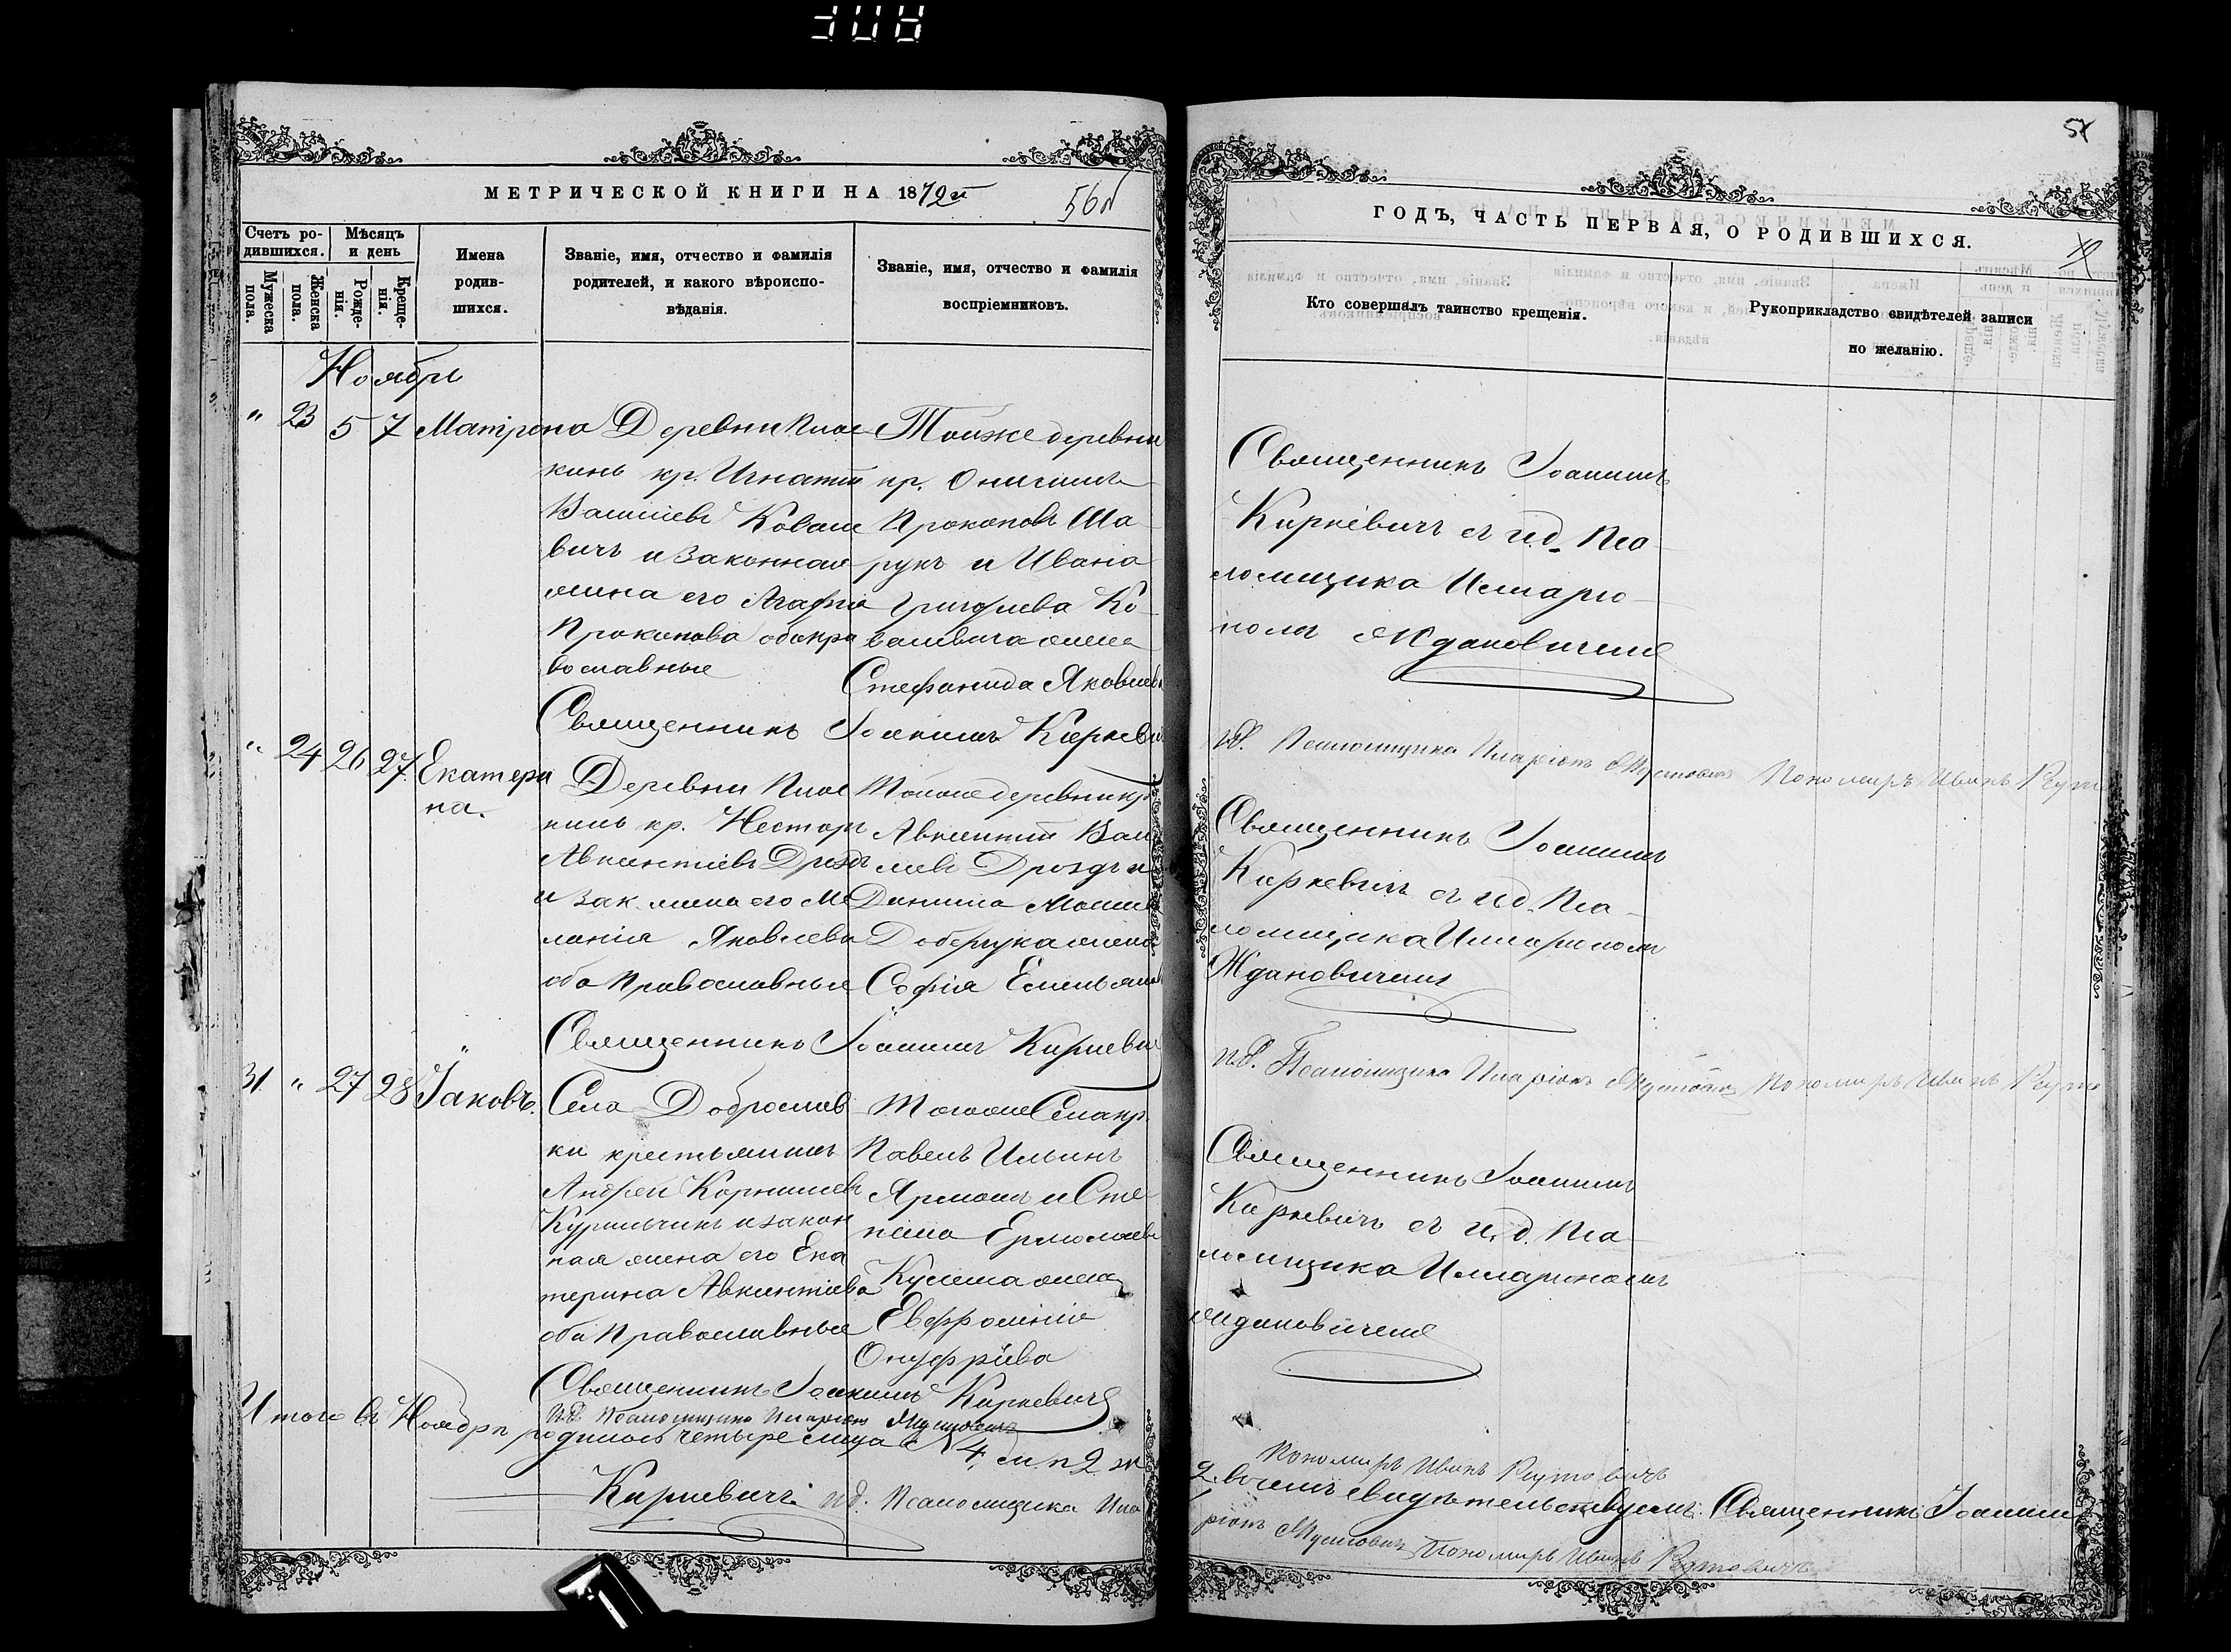 МЕТРИЧЕСКОЙ КНИГИ НА 1872й
56
Счетъ родившихся.
Мужеска пола.
Женска пола.
Мѣсяцъ и день
Рожденія.
Крещенія.
Имена родившихся.
Званіе, имя, отчество и фамилія родителей, и какого вѣроисповѣданія.
Званіе, имя, отчество и фамилія воспріемниковъ.
Ноябрь
" 23 5 7 Матрона
Деревни Плос
кинь кр. Игнатій
Васильевъ Ковале
вичъ и законная
жена его Агафія
Прокопова оба пра
вославные
Тойже деревни
кр. Онисимъ
Прокоповъ Ша
рукъ и Ивана
Григорьева Ко
валевича жена
Стефанида Яковлев
Священникъ Іоакимъ Киркеви
" 24 26 27 Екатери
на.
Деревни Плос
кинь кр. Несторъ
Авксентіевъ Дроздъ
и зак. жена его Ме
ланія Яковлева
оба Православные
Тойже деревни кр.
Авксентій Васи
льевъ Дроздъ и
Даниила
жена
Софія Емельянов
Священникъ Іоакимъ Киркевич
31 " 27 28 Іаковъ
Села Доброслав
ки крестьянинъ
Андрей Корнильевъ
Курильчикъ и закон
ная жена его Ека
терина Авксентіева
оба Православные
Тогоже Села кр.
Павелъ Ильинъ
Ярмошъ и Сте
пана Ермолаева
жена
Евфросинія
Онуфріева
Священникъ Іоакимъ Киркевичъ
И.д. Псаломщика Иларіонъ Ждановичъ
Итого въ Ноябрѣ родилось четыре лица № 4 м. п. 2 ж
Киркевичъ ид. Псаломщика Ила
57
ГОДЪ, ЧАСТЬ ПЕРВАЯ, О РОДИВШИХСЯ.
Кто совершалъ таинство крещенія.
Рукоприкладство свидѣтелей записи по желанію.
Священникъ Іоакимъ
Киркевичъ съ и.д. Пса
ломщика Илларіо
номъ Ждановичемъ
И.д. Псаломщика Иларіонъ Ждановичъ Пономарь Иванъ Руто
Священникъ Іоакимъ
Киркевичъ съ и.д. Пса
ломщика Илларіономъ
Ждановичемъ
И.д. Псаломщика Иларіонъ Ждановичъ Пономарь Иванъ Руто
Священникъ Іоакимъ
Киркевичъ съ и.д. Пса
ломщика Илларіономъ
Ждановичемъ
Пономарь Иванъ Рутовичъ
2. въ чемъ свидѣтельствуемъ: Священникъ Іоакимъ
ріонъ Ждановичъ Пономарь Иванъ Рутовичъ